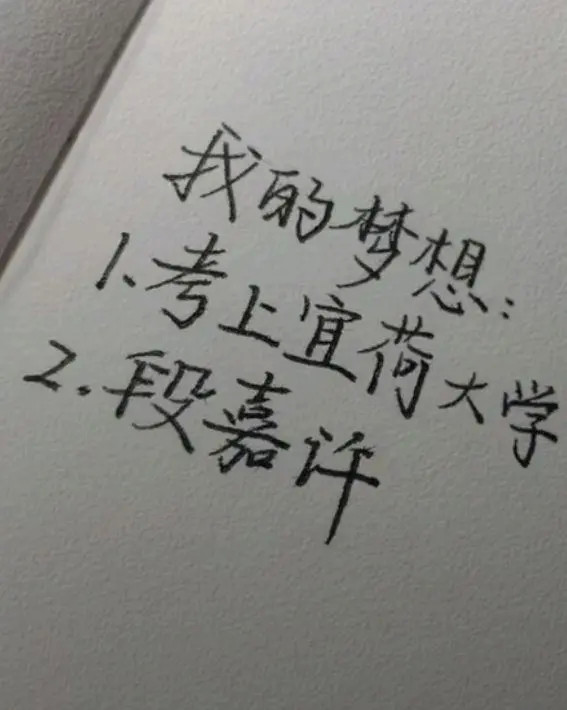 我的梦想:
1.考上宜荷大学
2.段嘉许